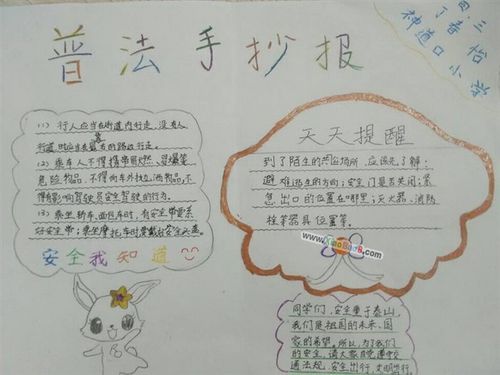 普法手抄报
四.三
丁春裕
神道口小学
(1) 行人应当在街道内行走，没有人
行道时应当靠路右的路边行走。
(2) 乘车人不得携带易燃、易爆等
危险物品，不得向车外抛洒物品，不
得有影响驾驶员安全驾驶的行为。
(3) 乘坐轿车、面包车时，有安全带要系
好安全带；乘坐摩托车时要戴好安全头盔。
安全我知道
天天提醒
到了陌生的公共场所，应该先了解：
避难逃生的方向；安全门是否关闭；紧
急出口的位置在哪里；灭火器、消防
栓等器具位置等。
www.XiaoBaoB.com
同学们，安全重于泰山，
我们是祖国的未来，国
家的希望。所以，为了我们
的安全，请大家自觉遵守交
通法规，安全出行，文明出行。